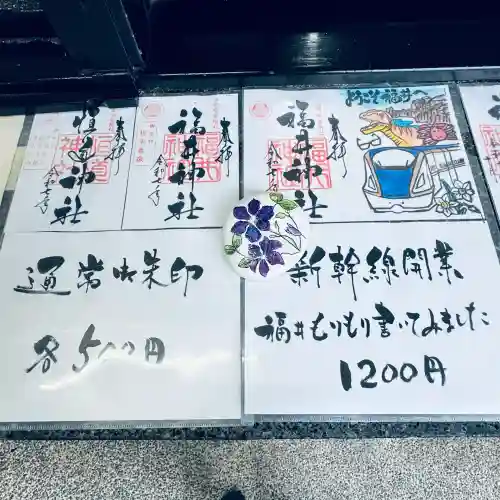 奉拝
恒道神社
奉拝
福井神社
奉拝
福井神社
ようこそ福井へ
通常御朱印
各500円
新幹線開業
福井もりもり書いてみました
1200円